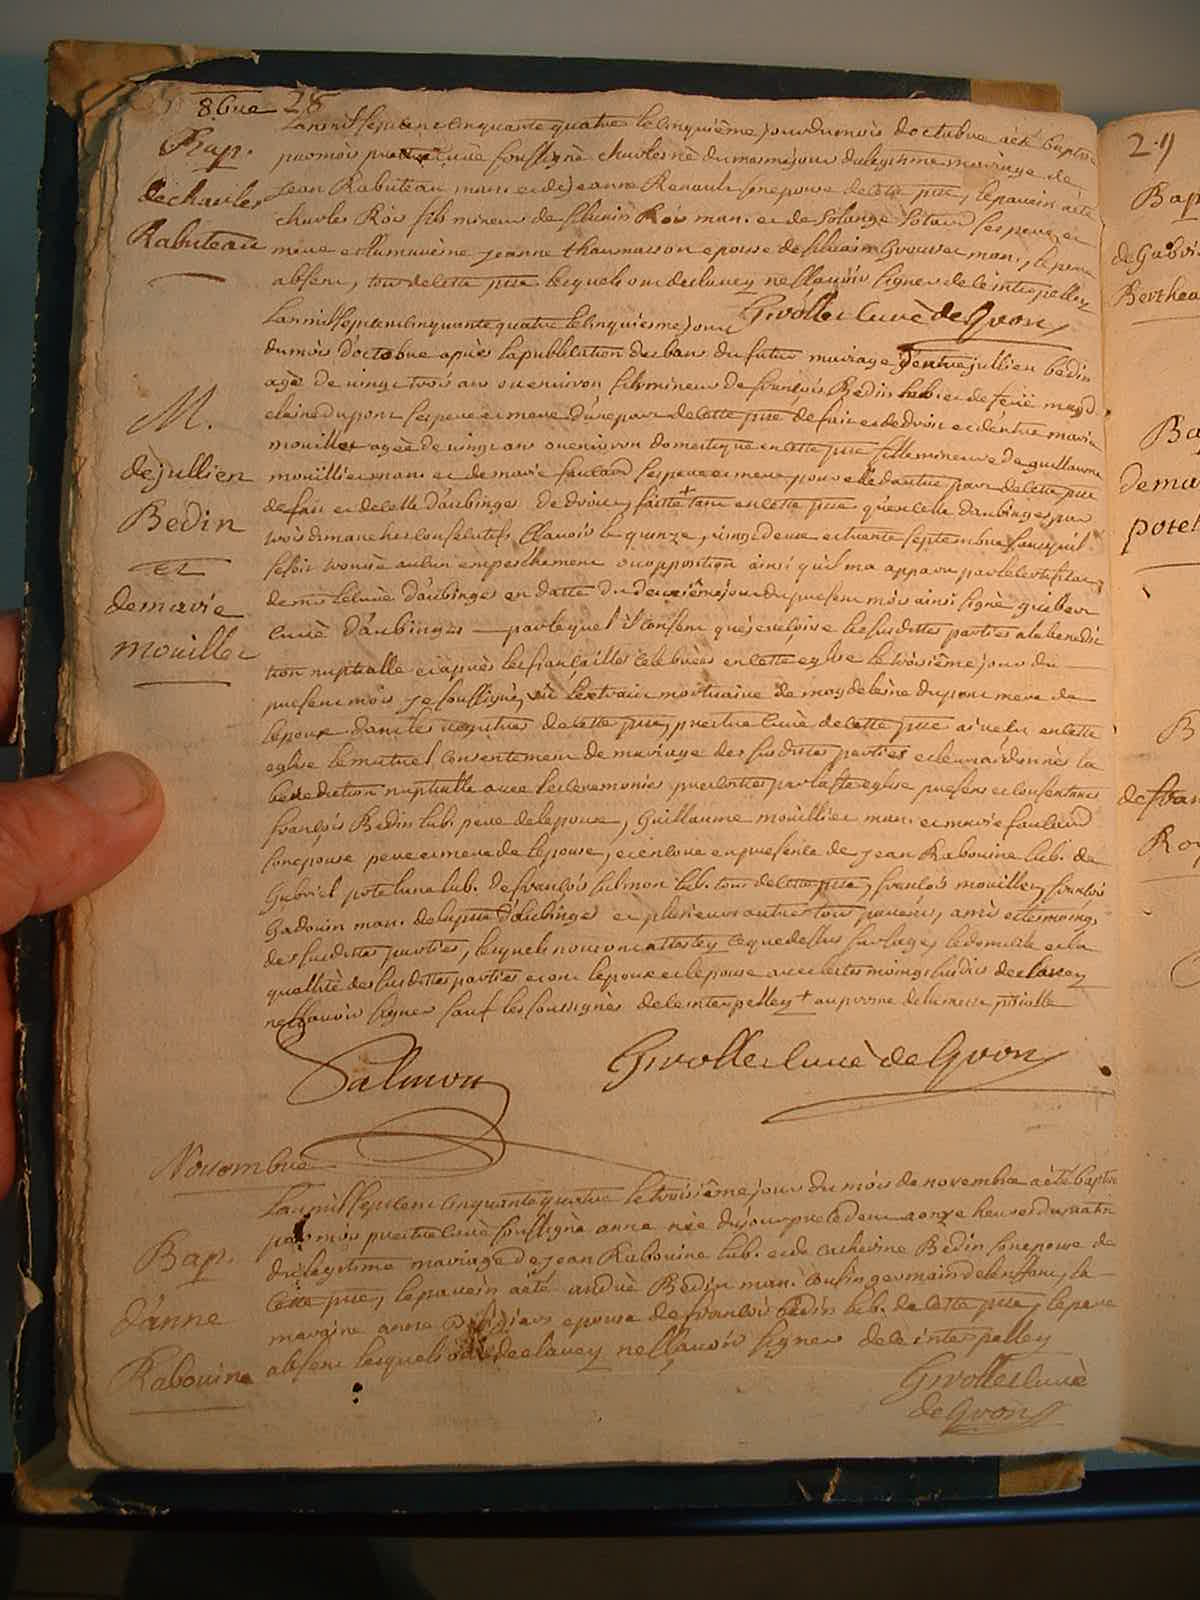 8bre 28
Bap.
de charles
Rabuteau
Lan mil sept cent cinquante quatre le cinquième jour du mois doctobre a été baptisé
par moi prestre curé soussigné charles né du mesme jour du legitime mariage de
Jean Rabuteau man. et de jeanne Renault son epouse de cette psse, le parein a été
charles Roy fils mineur de silvain Roy man. et de Solange ses pere et
mere et la mareine jeanne thaumasson epouse de silvain Grousset man., le pere
absent, tous de cette psse lesquels ont declarez ne sçavoir signer de ce interpellez
Grvollet curé de Gron
M.
de jullien
Bedin
et
de marie
mouillet
Lan mil sept cent cinquante quatre le cinquiesme jour
du mois doctobre après la publication des bans du futur mariage d'entre jullien bedin
agé de vingt trois ans ou environ fils mineur de françois Bedin lab. et de feüe magd
elaine dupont ses pere et mere d'une part de cette psse de fait et de droit et d'entre marie
mouillet agée de vingt ans ou environ domestique en cette psse fille mineure de guillaume
mouillier man. et de marie faulard ses pere et mere pour elle d'autre part de cette psse
de fait et de celle d'aubinges de droit, faitte + tant en cette psse qu'en celle d'aubinges par
trois dimanches consecutifs sçavoir le quinze, vingt deux et trente septembre sans qu'il
se soit trouvé aucun empeschement ou opposition ainsi qu'il m'a apparu par le certificat
de mr le curé d'aubinges en datte du deuxième jour du present mois ainsi signé guibert
curé d'aubinges par lequel il consent que je reçoive les susdittes parties a la benedic
tion nuptialle et après les fiançailles celebrées en cette eglise le troisième jour du
present mois je soussigné, vu l'extrait mortuaire de magdeleine dupont mere de
l'epoux dans les registres de cette psse, prestre curé de cette psse ai reçu en cette
eglise le mutuel consentement de mariage des susdittes parties et leur ai donné la
benediction nuptialle avec les ceremonies prescrittes par la ste eglise presens et consentans
françois Bedin lab. pere de l'epoux, Guillaume mouillier man. et marie faulard
son epouse pere et mere de l'epouse, et encore en presence de jean Rabouine lab. de
Gabriel potelune lab. de françois salmon lab. tous de cette psse, françois mouillet, françois
Gadouin man. de la psse d'aubinges et plusieurs autres tous parens, amis et temoins
des susdittes parties, lesquels nous ont attestez ce que dessus sur l'age, le domicile et la
qualité des susdittes parties et ont l'epoux et l'epouse avec les temoings susdits declarez
ne sçavoir signer sauf les soussignés de ce interpellez + au prosne de la messe psialle
Salmon
Grvollet curé de Gron
Novembre
Bap.
d'anne
Rabouine
Lan mil sept cent cinquante quatre le troisième jour du mois de novembre a été baptisée
par moi prestre curé soussigné anne née du jour precedent a onze heures du matin
du legitime mariage de jean Rabouine lab. et de catherine Bedin son epouse de
cette psse, le parein a été andré Bedin man. cousin germain de lenfant, la
mareine anne epouse de françois bedin lab. de cette psse, le pere
absent lesquels ont declarez ne sçavoir signer de ce interpellez
Grvollet curé
de Gron
29
Bap
de Gabri
Berthea
Ba
de ma
potel
B
de fran
Roy